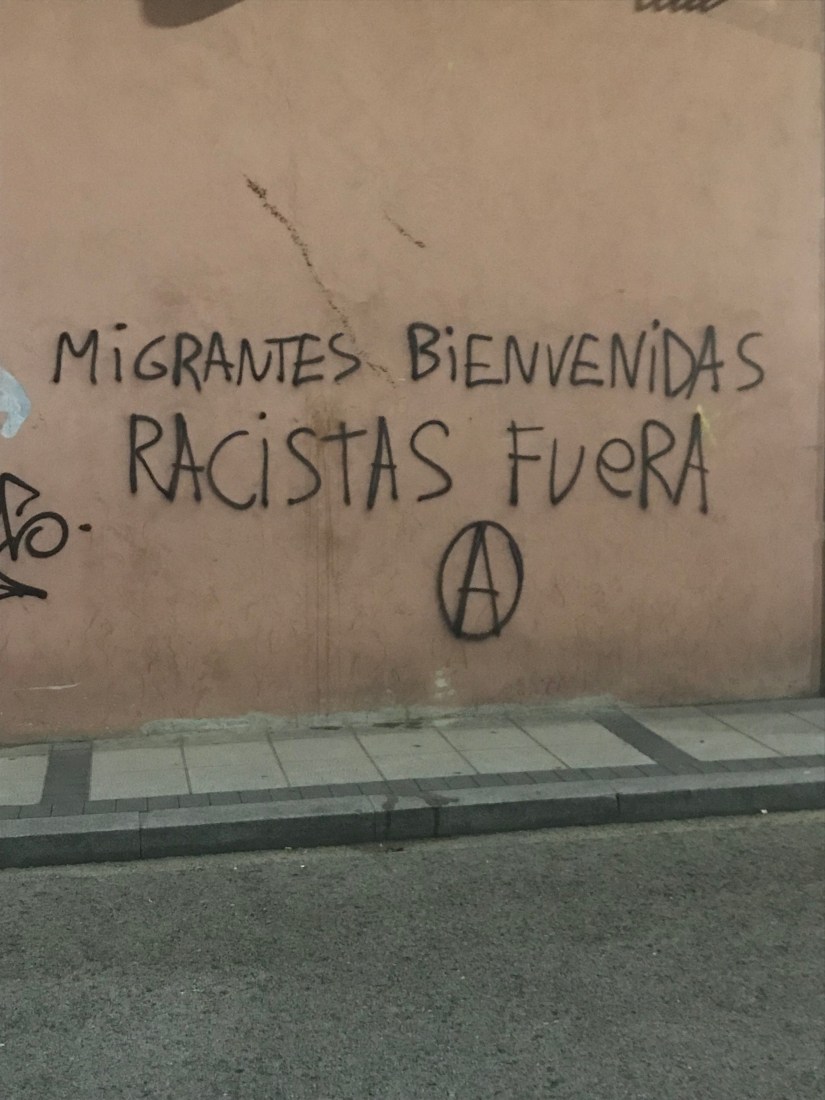 MiGRANTES BiENVENiDAS
RACiSTAS FueRA
A